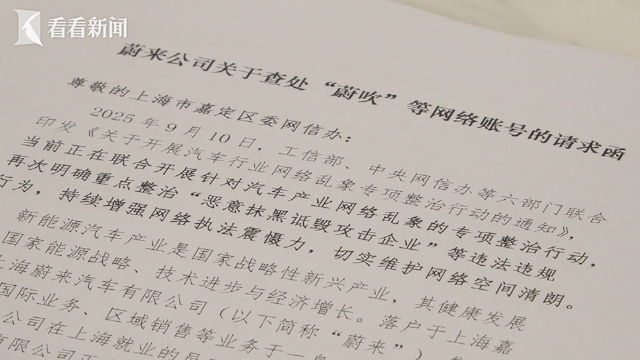 看看新闻
蔚来公司关于查处“蔚吹”等网络账号的请求函
尊敬的上海市嘉定区委网信办：
2025年9月10日，工信部、中央网信办等六部门联合
印发《关于开展汽车行业网络乱象专项整治行动的通知》，
当前正在联合开展针对汽车产业网络乱象的专项整治行动，
再次明确重点整治“恶意抹黑诋毁攻击企业”等违法违规
行为，持续增强网络执法震慑力，切实维护网络空间清朗。
新能源汽车产业是国家战略性新兴产业，其健康发展
国家能源战略、技术进步与经济增长。落户于上海嘉
上海蔚来汽车有限公司（以下简称“蔚来”）
国际业务、区域销售等业务于一
公司在上海就业的
有限公司